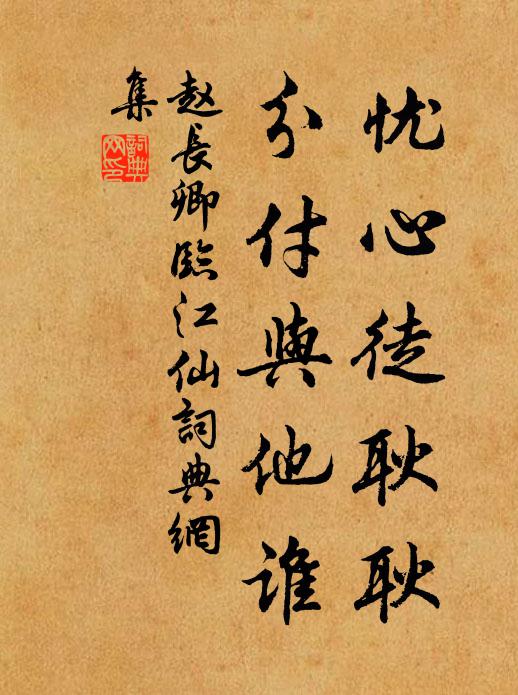 忧心徒耿耿
分付與他谁
赵長卿臨江仙詞典網
集
詞典
网印